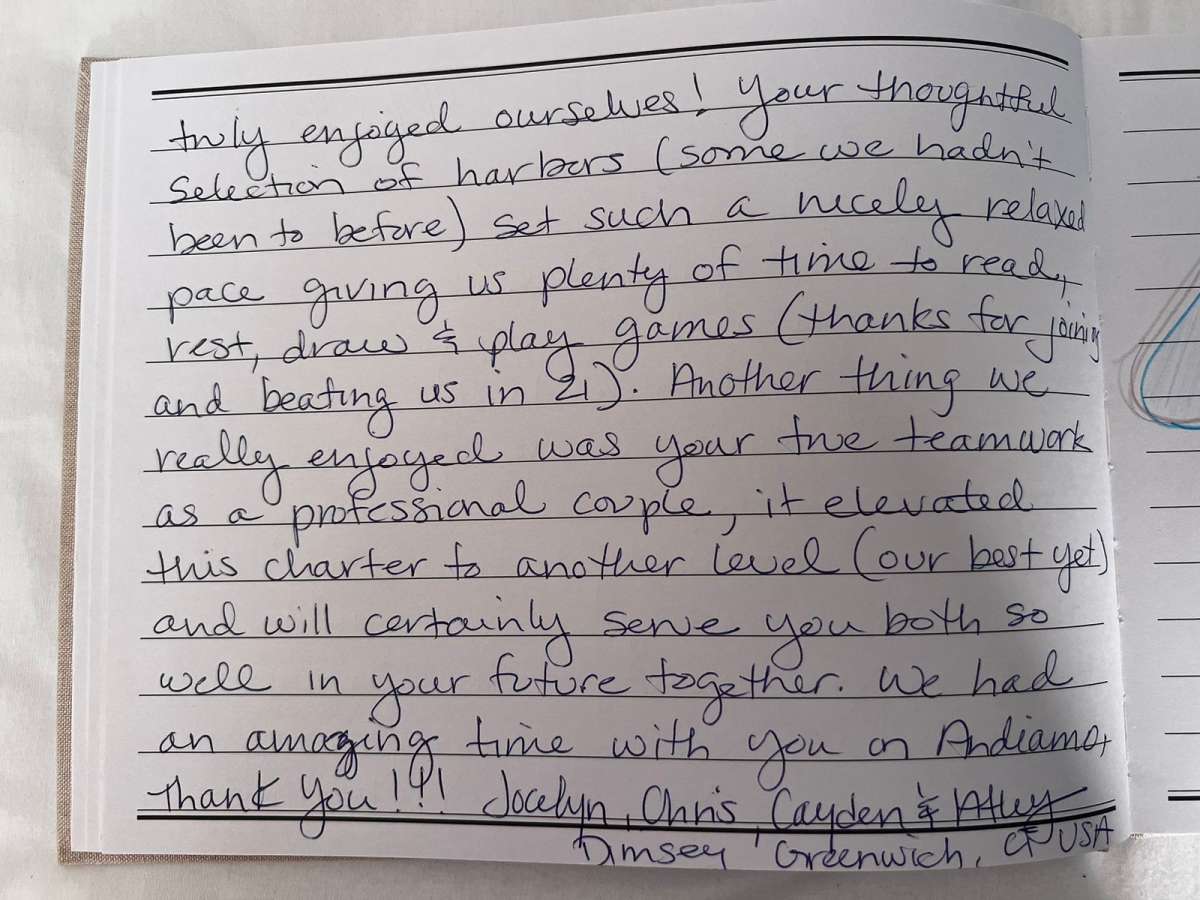 truly enjoyed ourselves! Your thoughtful
selection of harbors (some we hadn't
been to before) set such a nicely relaxed
pace giving us plenty of time to read,
rest, draw & play games (thanks for joining
and beating us in 21). Another thing we
really enjoyed was your true teamwork
as a professional couple, it elevated
this charter to another level (our best yet)
and will certainly serve you both so
well in your future together. We had
an amazing time with you on Andiamo,
thank you!!! Jocelyn, Chris, Cayden &
Greenwich, CT USA